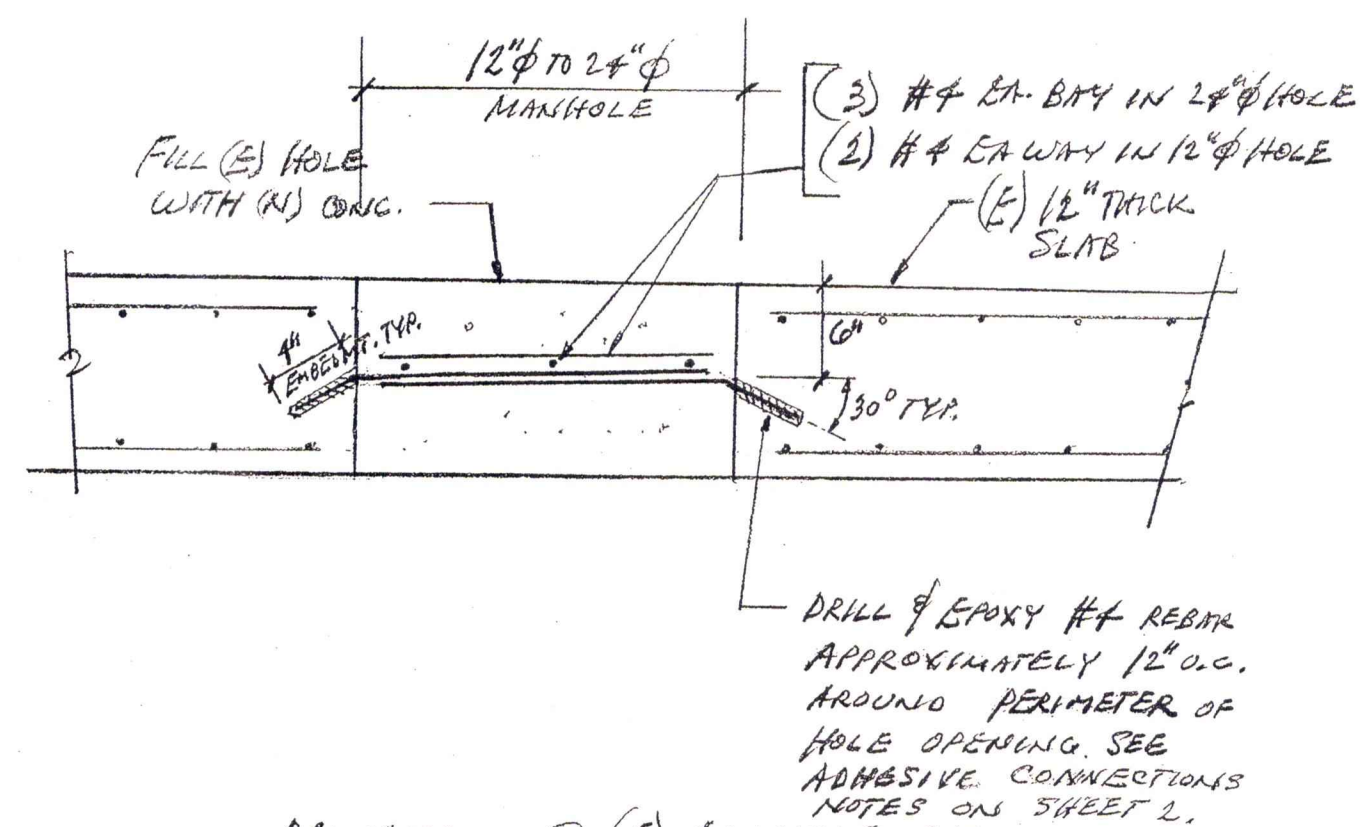 12"ϕ TO 24"ϕ
MANHOLE
(3) #4 EA. BAY IN 24"ϕ HOLE
(2) #4 EA WAY IN 12"ϕ HOLE
FILL (E) HOLE
WITH (N) CONC.
(E) 12" THICK
SLAB
4"
EMBEDMT. TYP.
6"
30° TYP.
DRILL & EPOXY #4 REBAR
APPROXIMATELY 12" O.C.
AROUND PERIMETER OF
HOLE OPENING. SEE
ADHESIVE CONNECTIONS
NOTES ON SHEET 2.
(E)